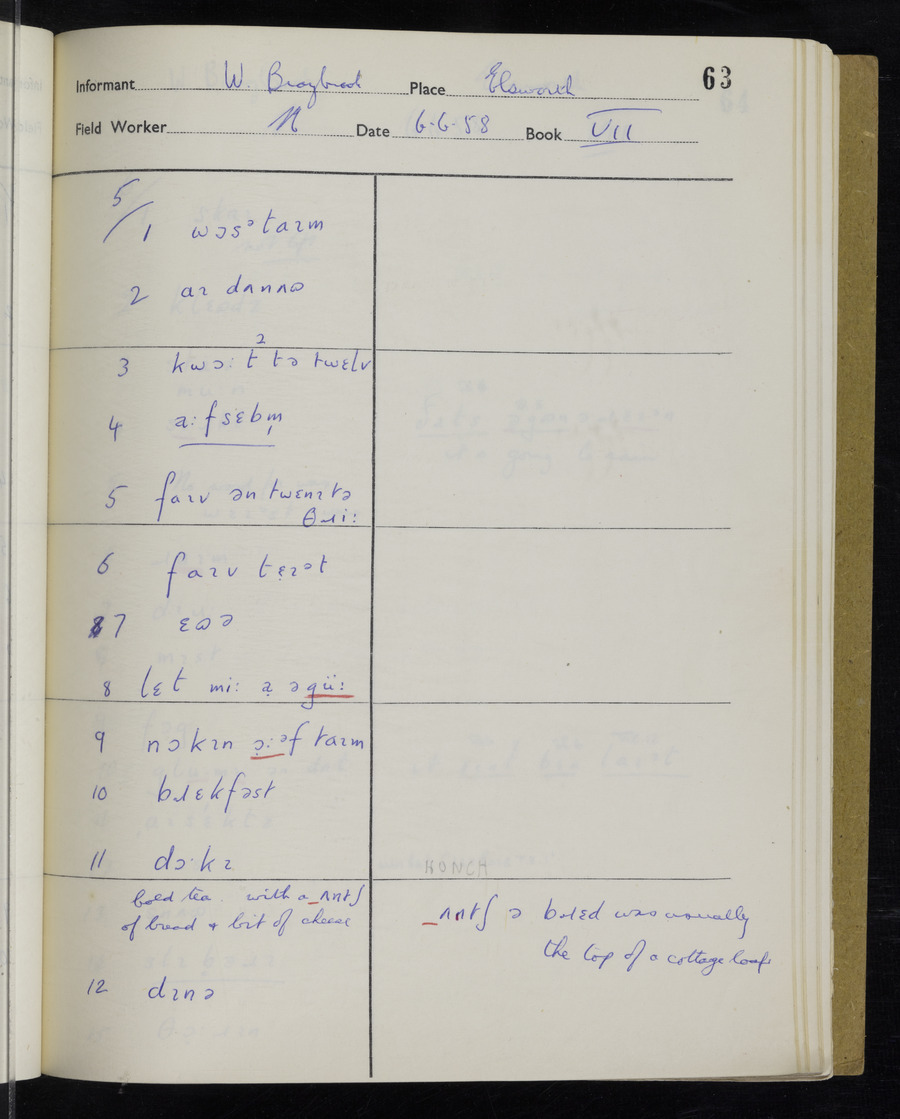 63
Informant W. Braybrook Place Elsworth
Field Worker N Date 6.6.58 Book VII
5/1 wɔsᵊ taɪm
2 aɪ dʌnnɷ
3 kwɔ:t tə twɛlv
2
4 a:f sɛbm̩
5 faɪv ən twenɪtə
θɹi:
6 faɪv tẹɪət
7 ɛɷə
8 lɛt mi: ạ əgü:
9 nɔkɪn ɔ̣:ᵊf taɪm
10 bɹɛkfəst
11 dɔ·kɪ
KONCH
bold tea. with a _ʌntʃ
of bread + bit of cheese
_ʌntʃ ə bɹɛd was usually
the top of a cottage loaf
12 dɪnə